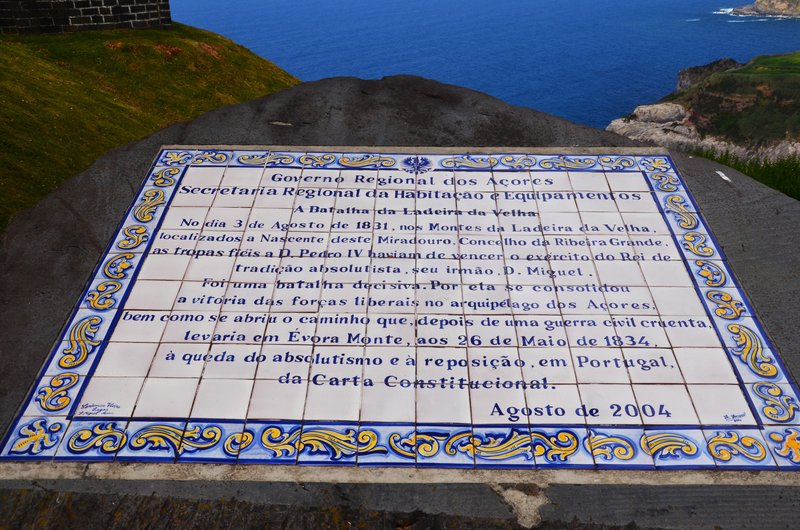 Governo Regional dos Açores
Secretaria Regional da Habitação e Equipamentos
A Batalha da Ladeira da Velha
No dia 3 de Agosto de 1831, nos Montes da Ladeira da Velha,
localizados a Nascente deste Miradouro, Concelho da Ribeira Grande,
as tropas fiéis a D. Pedro IV haviam de vencer o exército do Rei de
tradição absolutista, seu irmão, D. Miguel.
Foi uma batalha decisiva. Por eta se consolidou
a vitória das forças liberais no arquipélago dos Açores,
bem como se abriu o caminho que, depois de uma guerra civil cruenta,
levaria em Évora Monte, aos 26 de Maio de 1834,
à queda do absolutismo e à reposição, em Portugal,
da Carta Constitucional.
Agosto de 2004